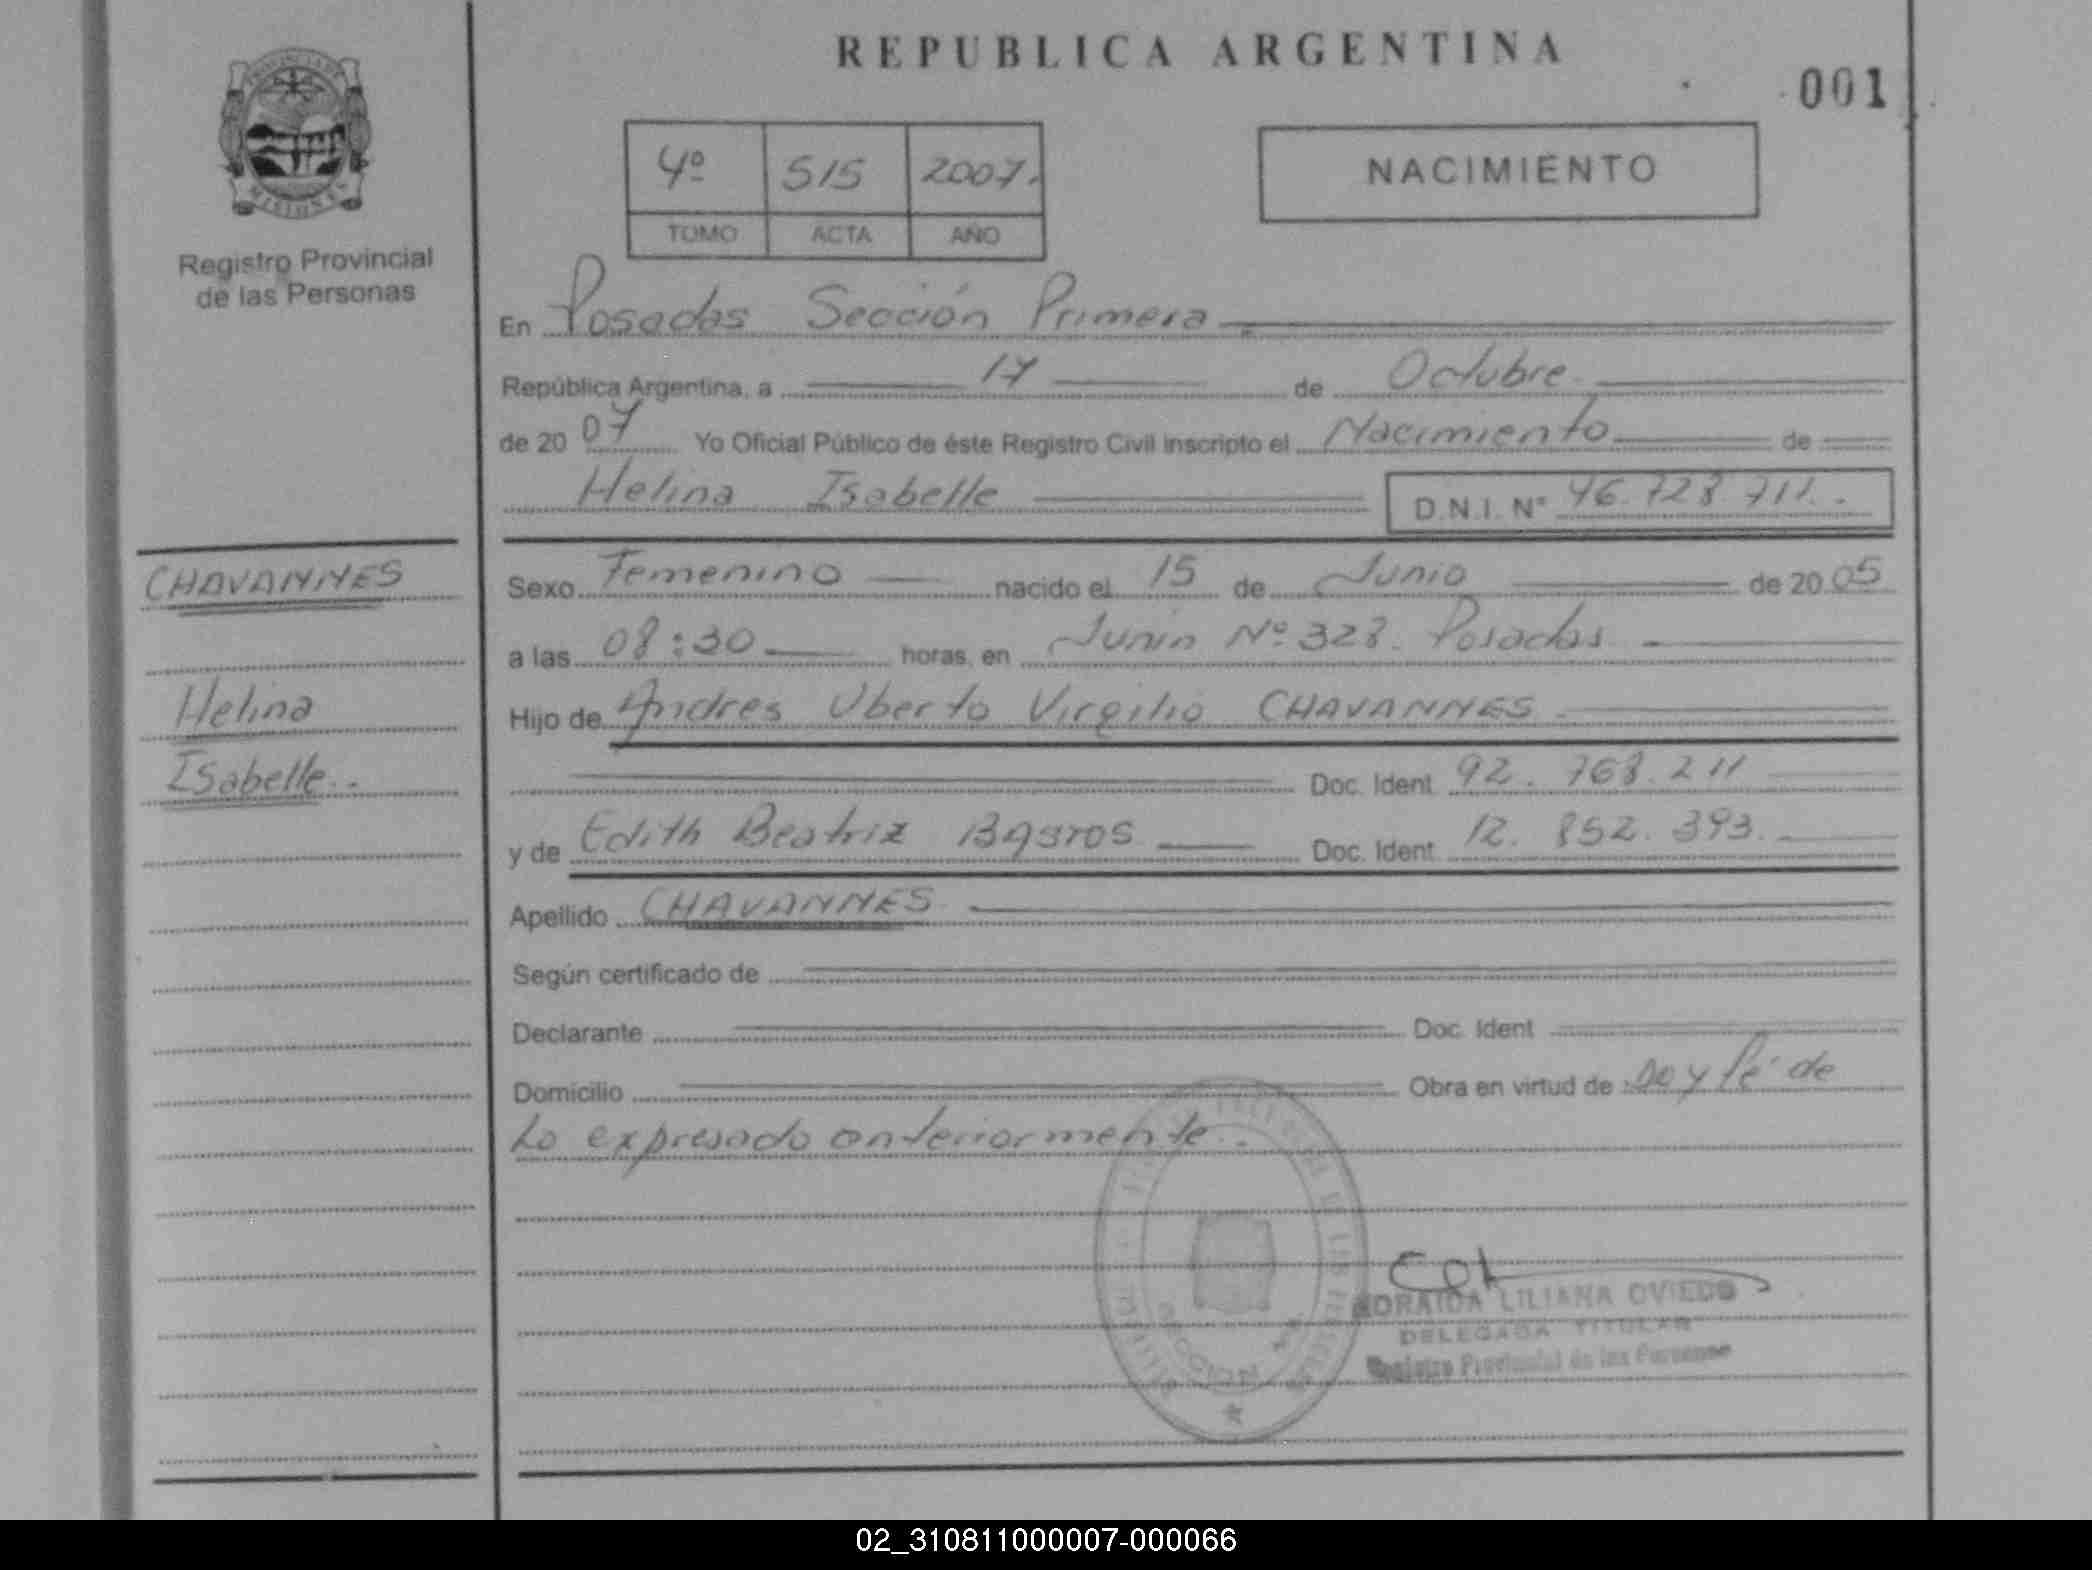 REPUBLICA ARGENTINA
001
4º 515 2007.
TOMO ACTA AÑO
NACIMIENTO
MISIONES
Registro Provincial
de las Personas
En Posadas Sección Primera
República Argentina, a 17 de Octubre
de 2007 Yo Oficial Público de éste Registro Civil inscripto el Nacimiento de
Helina Isabelle D.N.I. Nº 46.728.711.
CHAVANNES
Helina
Isabelle
Sexo Femenino nacido el 15 de Junio de 2005
a las 08:30 horas, en Junin Nº 328. Posadas
Hijo de Andres Uberto Virgilio CHAVANNES
Doc. Ident 92.768.211
y de Edith Beatriz Doc. Ident 12.852.393.
Apellido CHAVANNES
Según certificado de
Declarante Doc. Ident
Domicilio Obra en virtud de Doy fé de
Lo expresado anteriormente.
LILIANA OVIEDO
DELEGADA TITULAR
Registro Provincial de las Personas
02_310811000007-000066